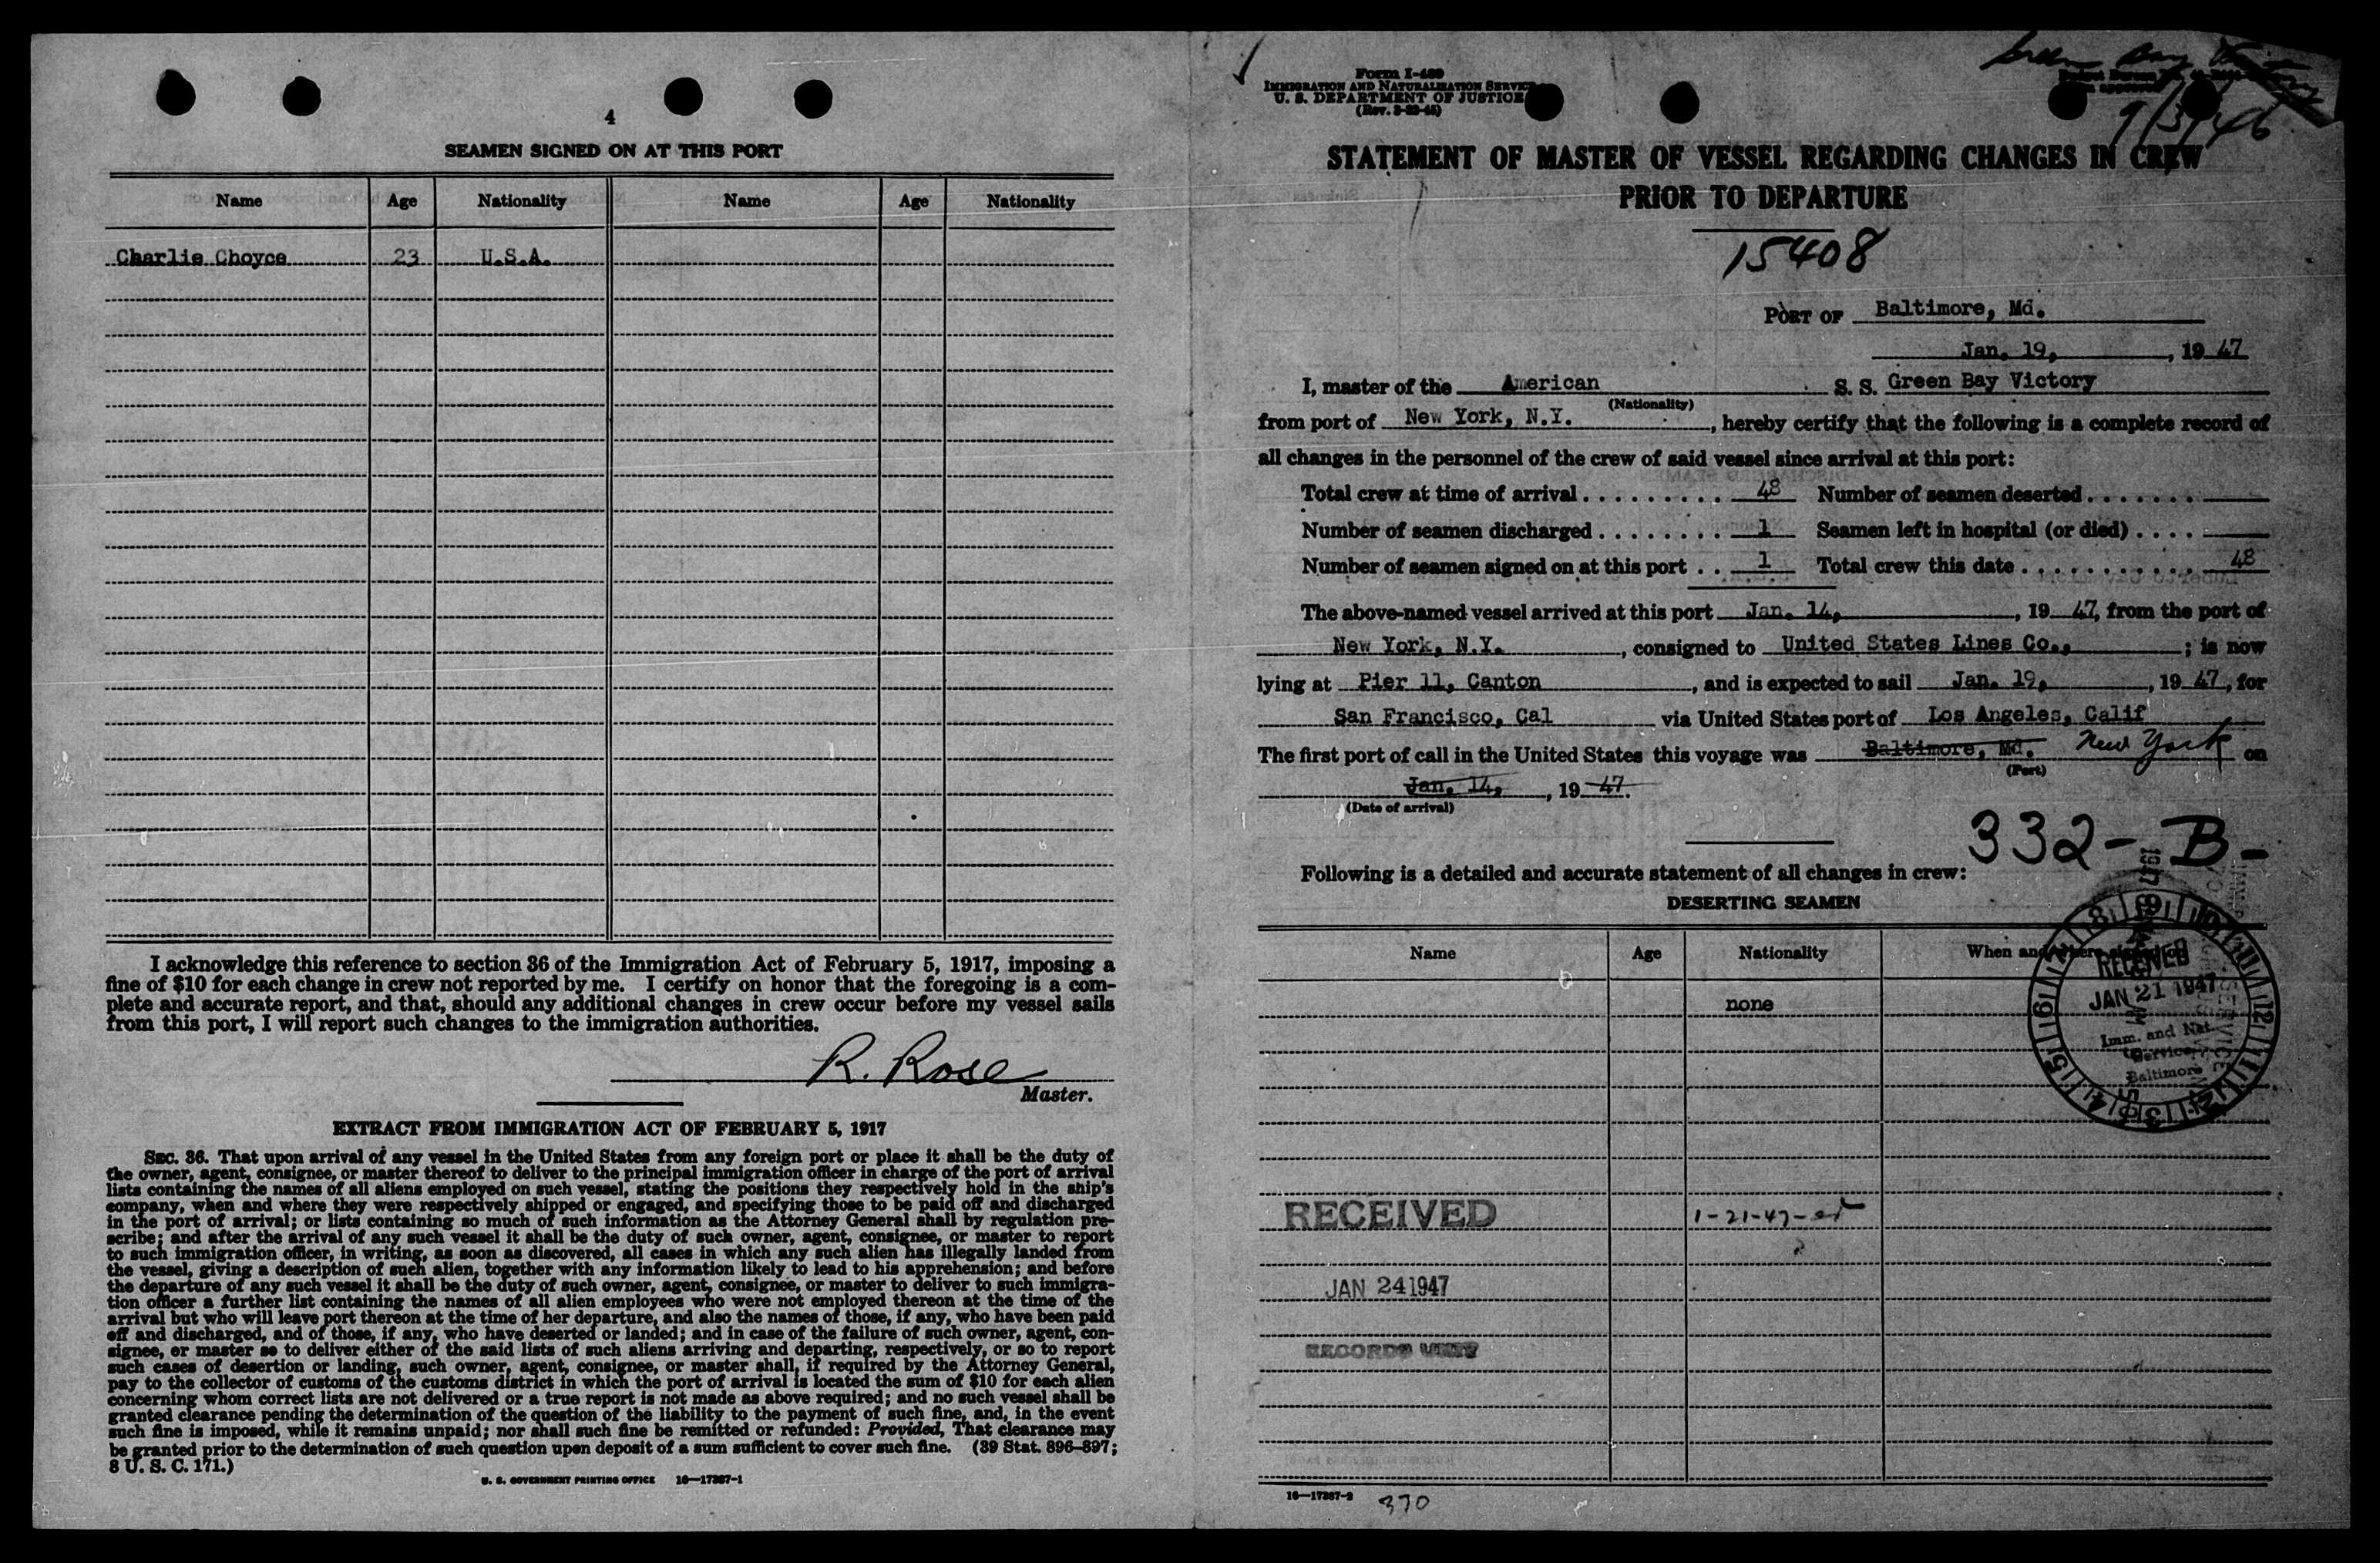 4
SEAMEN SIGNED ON AT THIS PORT
Name Age Nationality Name Age Nationality
Charlie Choyce 23 U.S.A.
I acknowledge this reference to section 36 of the Immigration Act of February 5, 1917, imposing a
fine of $10 for each change in crew not reported by me. I certify on honor that the foregoing is a com-
plete and accurate report, and that, should any additional changes in crew occur before my vessel sails
from this port, I will report such changes to the immigration authorities.
R. Rose
Master.
EXTRACT FROM IMMIGRATION ACT OF FEBRUARY 5, 1917
SEC. 36. That upon arrival of any vessel in the United States from any foreign port or place it shall be the duty of
the owner, agent, consignee, or master thereof to deliver to the principal immigration officer in charge of the port of arrival
lists containing the names of all aliens employed on such vessel, stating the positions they respectively hold in the ship's
company, when and where they were respectively shipped or engaged, and specifying those to be paid off and discharged
in the port of arrival; or lists containing so much of such information as the Attorney General shall by regulation pre-
scribe; and after the arrival of any such vessel it shall be the duty of such owner, agent, consignee, or master to report
to such immigration officer, in writing, as soon as discovered, all cases in which any such alien has illegally landed from
the vessel, giving a description of such alien, together with any information likely to lead to his apprehension; and before
the departure of any such vessel it shall be the duty of such owner, agent, consignee, or master to deliver to such immigra-
tion officer a further list containing the names of all alien employees who were not employed thereon at the time of the
arrival but who will leave port thereon at the time of her departure, and also the names of those, if any, who have been paid
off and discharged, and of those, if any, who have deserted or landed; and in case of the failure of such owner, agent, con-
signee, or master so to deliver either of the said lists of such aliens arriving and departing, respectively, or so to report
such cases of desertion or landing, such owner, agent, consignee, or master shall, if required by the Attorney General,
pay to the collector of customs of the customs district in which the port of arrival is located the sum of $10 for each alien
concerning whom correct lists are not delivered or a true report is not made as above required; and no such vessel shall be
granted clearance pending the determination of the question of the liability to the payment of such fine, and, in the event
such fine is imposed, while it remains unpaid; nor shall such fine be remitted or refunded: Provided, That clearance may
be granted prior to the determination of such question upon deposit of a sum sufficient to cover such fine. (39 Stat. 896–897;
8 U. S. C. 171.)
U. S. GOVERNMENT PRINTING OFFICE 16—17387-1
Form I-489
IMMIGRATION AND NATURALIZATION SERVICE
U. S. DEPARTMENT OF JUSTICE
Green Bay Victory
STATEMENT OF MASTER OF VESSEL REGARDING CHANGES IN CREW
PRIOR TO DEPARTURE
15408
PORT OF Baltimore, Md.
Jan. 19, , 19 47
I, master of the American S. S. Green Bay Victory
(Nationality)
from port of New York, N.Y. , hereby certify that the following is a complete record of
all changes in the personnel of the crew of said vessel since arrival at this port:
Total crew at time of arrival . . . . . . . . . . 48 Number of seamen deserted . . . . . . .
Number of seamen discharged . . . . . . . . . 1 Seamen left in hospital (or died) . . . .
Number of seamen signed on at this port . . 1 Total crew this date . . . . . . . . . . . . 48
The above-named vessel arrived at this port Jan. 14, , 19 47, from the port of
New York, N.Y. , consigned to United States Lines Co., ; is now
lying at Pier 11, Canton , and is expected to sail Jan. 19, , 19 47, for
San Francisco, Cal via United States port of Los Angeles, Calif
The first port of call in the United States this voyage was Baltimore, Md. New York on
(Port)
Jan. 14, , 19 47.
(Date of arrival)
332-B-
Following is a detailed and accurate statement of all changes in crew:
DESERTING SEAMEN
Name Age Nationality When and
none
RECEIVED
JAN 21 1947
Imm. and Nat.
Service
Baltimore
RECEIVED
1-21-47-
JAN 24 1947
RECORDS UNIT
16—17387-2
370